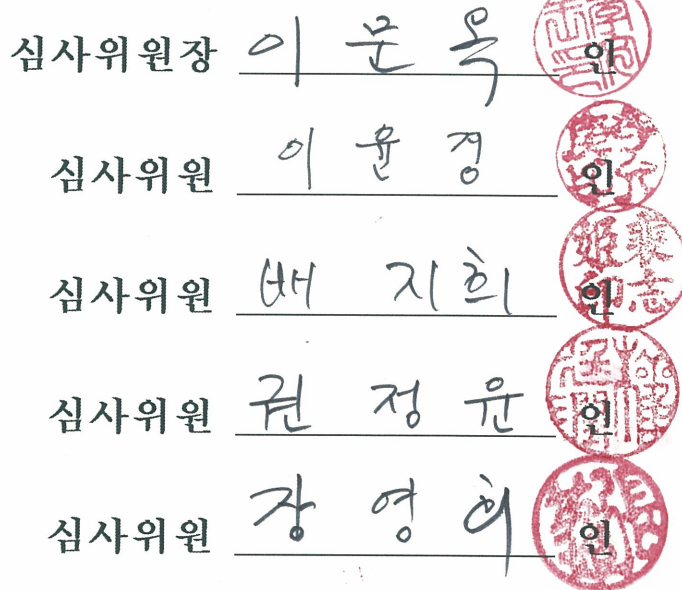 심사위원장 이문옥 인
심사위원 이윤경 인
심사위원 배지희 인
심사위원 권정윤 인
심사위원 장영희 인